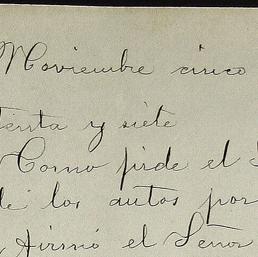 Noviembre cinco
tenta y siete
Como pide el
de los autos por
firmó el Señor